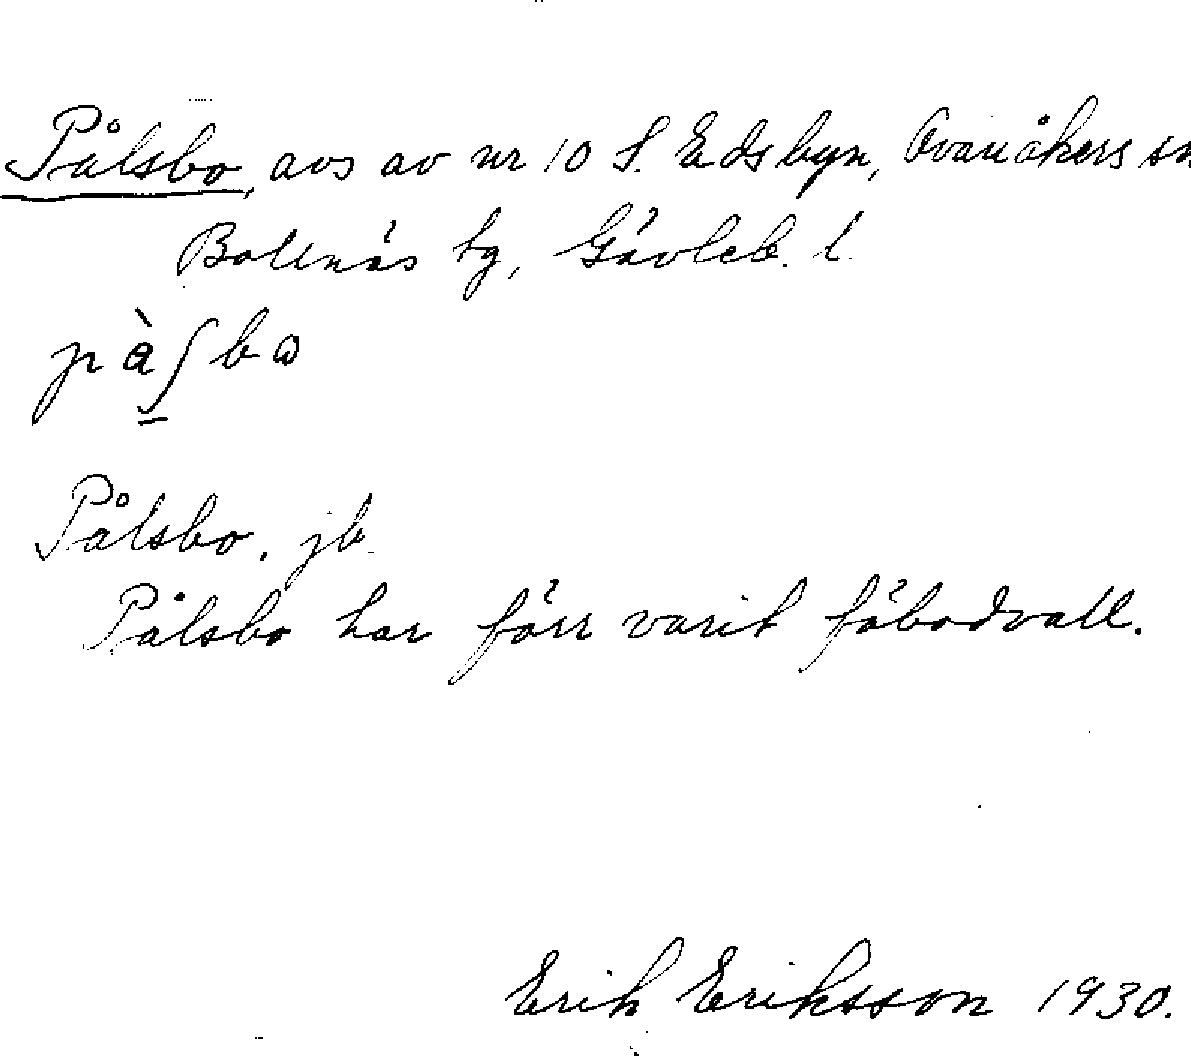 Pålsbo, avs av nr 10 S. Edsbyn, Ovanåkers sn
Bollnäs tg, Gävleb. l.
pàʃbω
Pålsbo. jb.
Pålsbo har förr varit fäbodvall.
Erik Eriksson 1930.